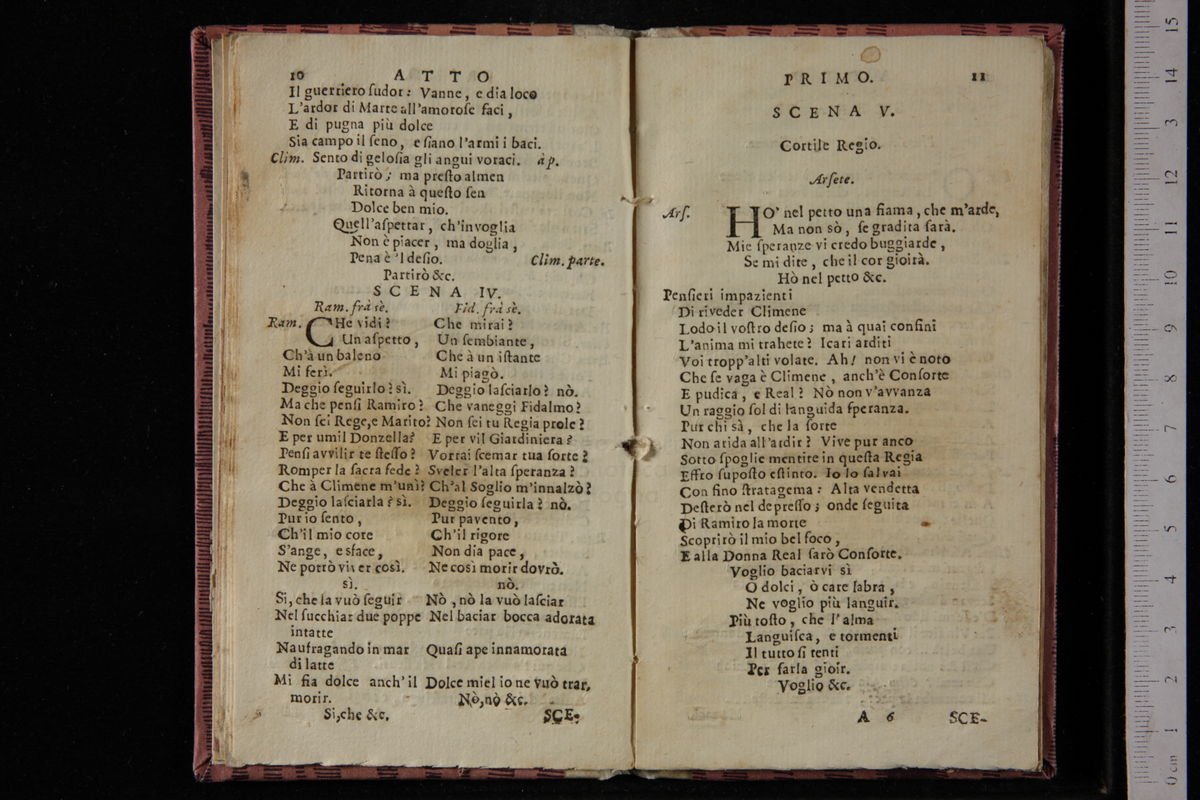 10 ATTO
Il guerriero ſudor: Vanne, e dia loco
L'ardor di Marte all'amoroſe faci,
E di pugna più dolce
Sia campo il ſeno, e ſiano l'armi i baci.
Clim. Sento di geloſia gli angui voraci. àp.
Partirò; ma preſto almen
Ritorna à queſto ſen
Dolce ben mio.
Quell'aſpettar, ch'invoglia
Non è piacer, ma doglia,
Pena è 'l deſio. Clim. parte.
Partirò &c.
SCENA IV.
Ram. frà sè. Fid. frà sè.
Ram. CHe vidi? Che mirai?
Un aſpetto, Un ſembiante,
Ch'à un baleno Che à un iſtante
Mi ferì. Mi piagò.
Deggio ſeguirlo? sì. Deggio laſciarlo? nò.
Ma che penſi Ramiro? Che vaneggi Fidalmo?
Non ſei Rege, e Marito? Non ſei tu Regia prole?
E per umil Donzella? E per vil Giardiniera?
Penſi avvilir te ſteſſo? Vorrai ſcemar tua ſorte?
Romper la ſacra fede? Sveler l'alta ſperanza?
Che à Climene m'unì? Ch'al Soglio m'innalzò?
Deggio laſciarla? sì. Deggio ſeguirla? nò.
Pur io ſento, Pur pavento,
Ch'il mio core Ch'il rigore
S'ange, e sface, Non dia pace,
Ne potrò viver così. Ne così morir dovrò.
sì. nò.
Si, che la vuò ſeguir Nò, nò la vuò laſciar
Nel ſucchiar due poppe Nel baciar bocca adorata
intatte
Naufragando in mar Quaſi ape innamorata
di latte
Mi fia dolce anch'il Dolce miel io ne vuò trar,
morir. Nò, nò &c.
Si, che &c. SCE-
PRIMO. 11
SCENA V.
Cortile Regio.
Arſete.
Arſ. HO' nel petto una fiama, che m'arde,
Ma non sò, ſe gradita ſarà.
Mie ſperanze vi credo buggiarde,
Se mi dite, che il cor gioirà.
Hò nel petto &c.
Penſieri impazienti
Di riveder Climene
Lodo il voſtro deſio; ma à quai confini
L'anima mi trahete? Icari arditi
Voi tropp'alti volate. Ah! non vi è noto
Che ſe vaga è Climene, anch'è Conſorte
E pudica, e Real? Nò non v'avvanza
Un raggio ſol di languida ſperanza.
Pur chi sà, che la ſorte
Non arida all'ardir? Vive pur anco
Sotto ſpoglie mentite in queſta Regia
Effro ſupoſto eſtinto. Io lo ſalvai
Con fino ſtratagema: Alta vendetta
Deſterò nel depreſſo; onde ſeguita
Di Ramiro la morte
Scoprirò il mio bel foco,
E alla Donna Real ſarò Conſorte.
Voglio baciarvi sì
O dolci, ò care labra,
Ne voglio più languir.
Più toſto, che l'alma
Languiſca, e tormenti
Il tutto ſi tenti
Per farla gioir.
Voglio &c.
A 6 SCE-